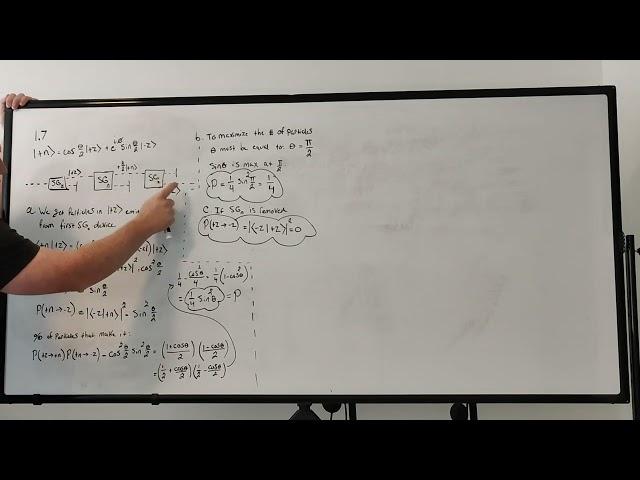 1.7
|+n⟩ = cos θ/2 |+z⟩ + e^{iϕ} sin θ/2 |-z⟩
|+z⟩
SGz
SGn
SGz
a. We get Particles in |+z⟩
from first SGz device
sin θ/2
P(+n→-z) = |⟨-z|+n⟩|² = sin² θ/2
% of Particles that make it:
P(+z→+n) P(+n→-z) = cos² θ/2 sin² θ/2 = (1+cosθ/2) (1-cosθ/2)
= (1/2 + cosθ/2) (1/2 - cosθ/2)
1/4 - cos²θ/4 = 1/4 (1-cos²θ)
= 1/4 sin²θ = P
b. To maximize the # of Particles
θ must be equal to θ = π/2
Sinθ is max at π/2
P = 1/4 sin² π/2 = 1/4
c. If SGn is removed
P(+z→-z) = |⟨-z|+z⟩|² = 0